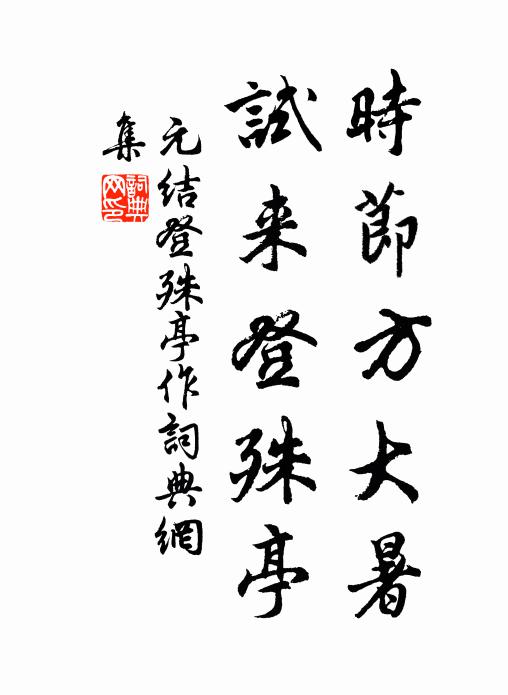 時節方大暑
試来登殊亭
元结登殊亭作詞典網
集
詞典網印